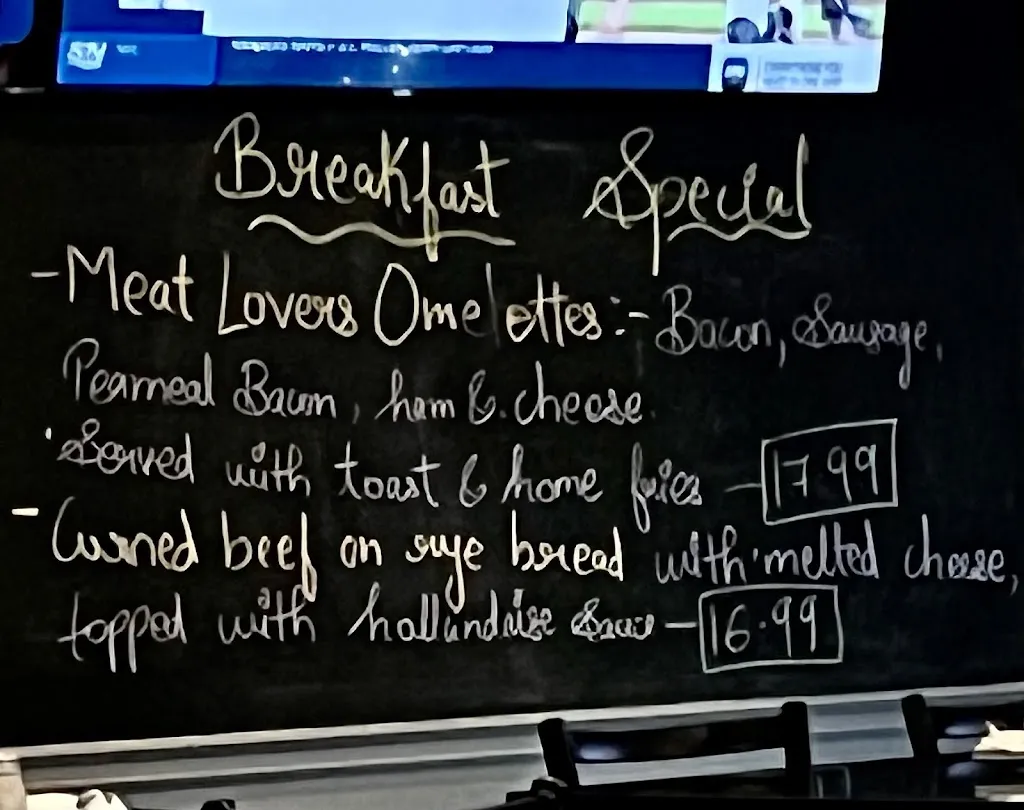 Breakfast Special
- Meat Lovers Omelettes:- Bacon, Sausage,
Peameal Bacon, ham & cheese
Served with toast & home fries - 17.99
- Corned beef on rye bread with melted cheese,
topped with hollandise Sauce - 16.99